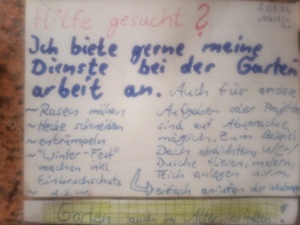 Hilfe gesucht?
Ich biete gerne meine
Dienste bei der Garten
arbeit an. Auch für andere
~ Rasen mähen
~ Hecke schneiden
~ entrümpeln
~ "Winter-Fest"
machen inkl.
Einbruchschutz
~ u.s.w.
Aufgaben oder Projekte
sind auf Absprache
möglich, zum Beispiel
Dach abdichten, WC/
Dusche fliesen, mauern,
Teich anlegen u.v.m.
einfach anrufen oder
Garten auch im Alter